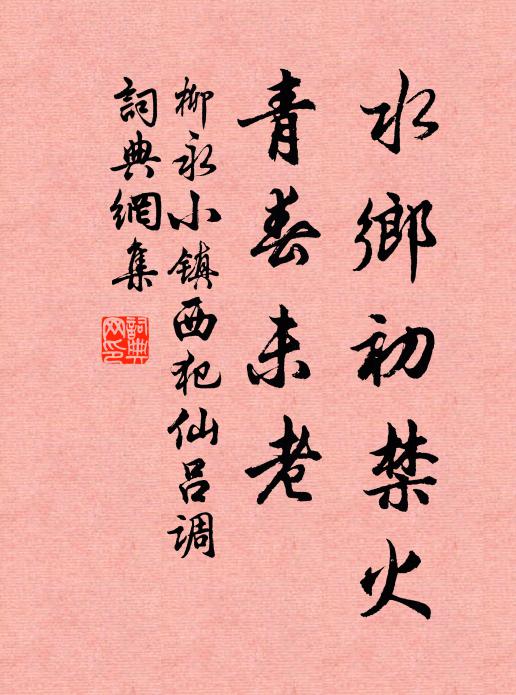 水鄉初禁火
青春未老
柳永小镇西犯仙吕調
詞典網集
詞典網印